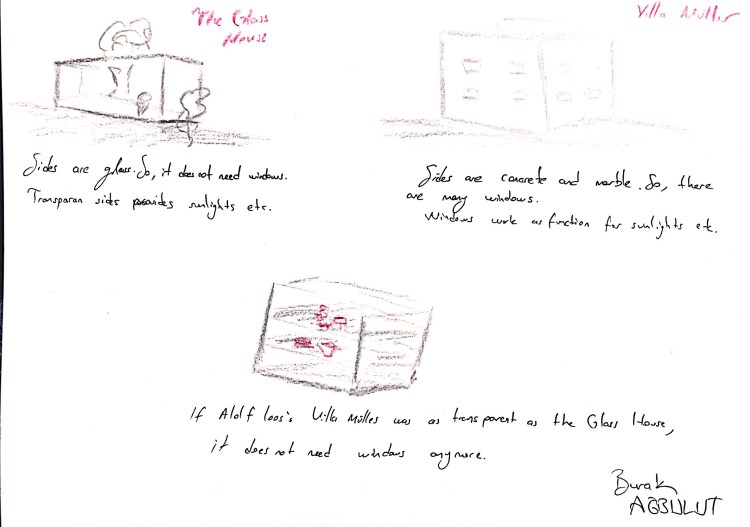 The Glass
House
Villa Müller
Sides are glass. So, it does not need windows.
Transparan sides provides sunlights etc.
Sides are concrete and marble. So, there
are many windows.
Windows work as function for sunlights etc.
If Alolf loos's Villa Mülles was as transparent as the Glass House,
it does not need windows anymore.
Burak
AGBULUT